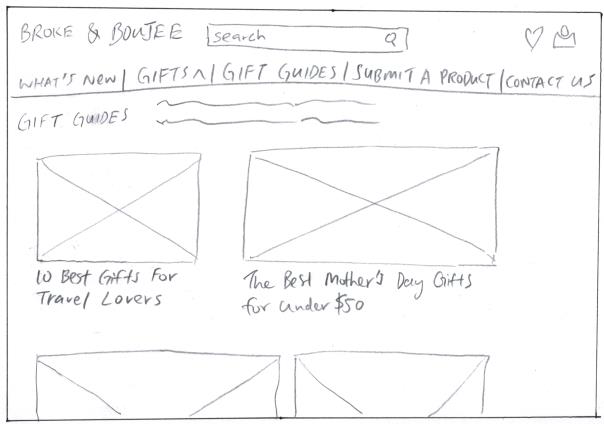 BROKE & BOUJEE
search
WHAT'S NEW | GIFTS ^ | GIFT GUIDES | SUBMIT A PRODUCT | CONTACT US
GIFT GUIDES
10 Best Gifts For
Travel Lovers
The Best Mother's Day Gifts
for under $50